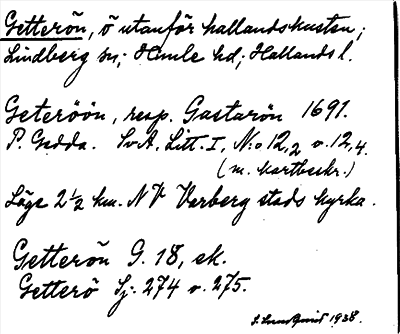 Getterön, ö utanför hallandskusten;
Lindberg sn; Himle hd; Hallands l.
Geteröön, resp. Gastarön 1691.
P. Gedda. SvA. Litt. I, N:o 12,2 o. 12,4.
(m. kartbeskr.)
Läge 2 1/2 km. NV Varberg stads kyrka.
Getterön G. 18, ek.
Getterö Sj. 274 o. 275.
S. Lundquist 1938.